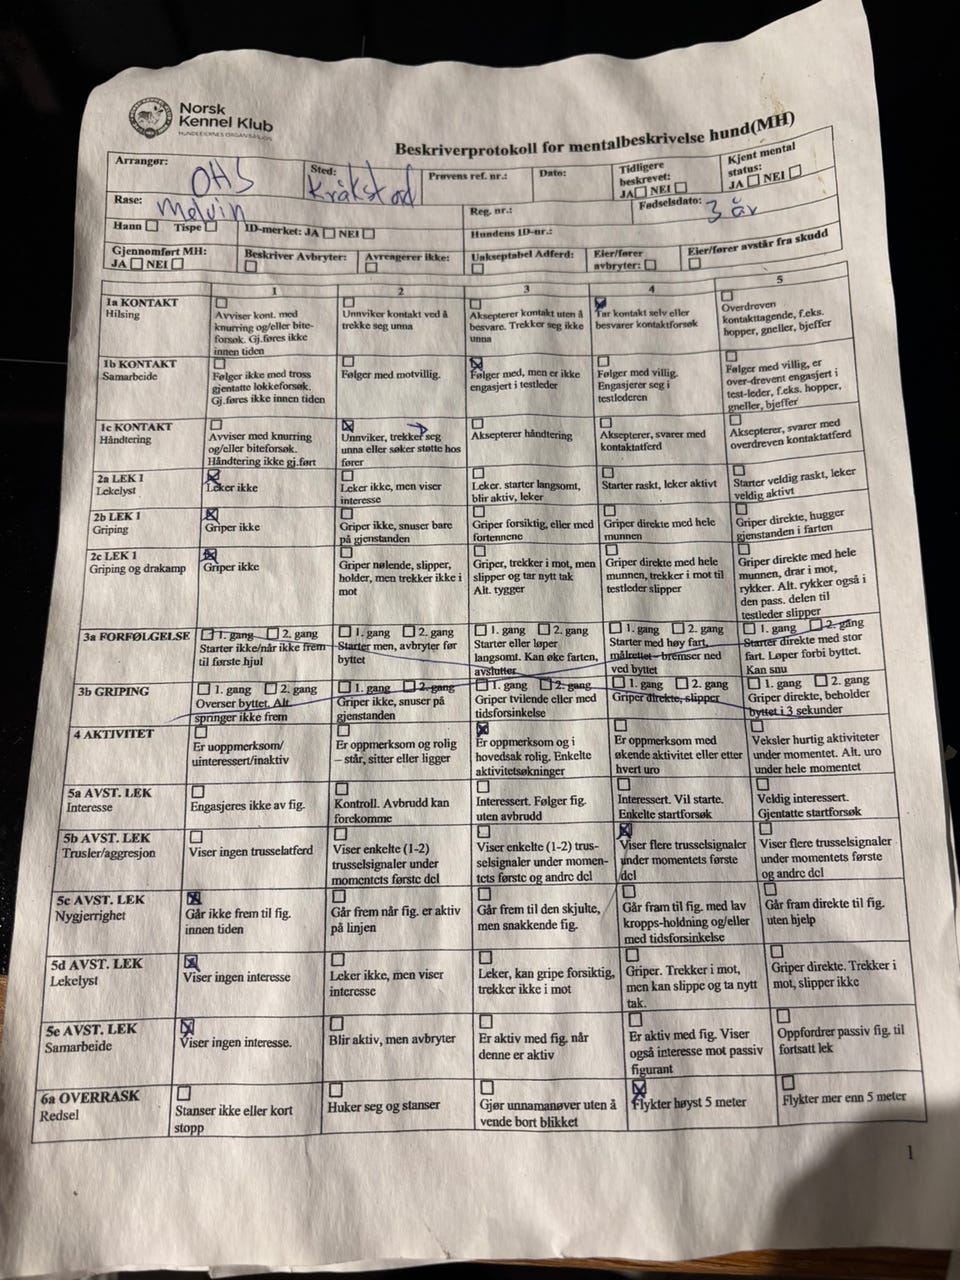 Norsk
Kennel Klub
HUNDEEIERNES ORGANISASJON
Beskriverprotokoll for mentalbeskrivelse hund(MH)
Arrangør: OHS
Sted: Kråkstad
Prøvens ref. nr.:
Dato:
Tidligere beskrevet: JA NEI
Kjent mental status: JA NEI
Rase: Melvin
Reg. nr.:
Fødselsdato: 3 år
Hann Tispe
ID-merket: JA NEI
Hundens ID-nr.:
Gjennomført MH: JA NEI
Beskriver Avbryter:
Avreagerer ikke:
Uakseptabel Adferd:
Eier/fører avbryter:
Eier/fører avstår fra skudd
1 2 3 4 5
1a KONTAKT
Hilsing
Avviser kont. med knurring og/eller bite-forsøk. Gj.føres ikke innen tiden
Unnviker kontakt ved å trekke seg unna
Aksepterer kontakt uten å besvare. Trekker seg ikke unna
Tar kontakt selv eller besvarer kontaktforsøk
Overdreven kontakttagende, f.eks. hopper, gneller, bjeffer
1b KONTAKT
Samarbeide
Følger ikke med tross gjentatte lokkeforsøk. Gj.føres ikke innen tiden
Følger med motvillig.
Følger med, men er ikke engasjert i testleder
Følger med villig. Engasjerer seg i testlederen
Følger med villig, er over-drevent engasjert i test-leder, f.eks. hopper, gneller, bjeffer
1c KONTAKT
Håndtering
Avviser med knurring og/eller biteforsøk. Håndtering ikke gj.ført
Unnviker, trekker seg unna eller søker støtte hos fører
Aksepterer håndtering
Aksepterer, svarer med kontaktatferd
Aksepterer, svarer med overdreven kontaktatferd
2a LEK 1
Lekelyst
Leker ikke
Leker ikke, men viser interesse
Leker. starter langsomt, blir aktiv, leker
Starter raskt, leker aktivt
Starter veldig raskt, leker veldig aktivt
2b LEK 1
Griping
Griper ikke
Griper ikke, snuser bare på gjenstanden
Griper forsiktig, eller med fortennene
Griper direkte med hele munnen
Griper direkte, hugger gjenstanden i farten
2c LEK 1
Griping og drakamp
Griper ikke
Griper nølende, slipper, holder, men trekker ikke i mot
Griper, trekker i mot, men slipper og tar nytt tak Alt. tygger
Griper direkte med hele munnen, trekker i mot til testleder slipper
Griper direkte med hele munnen, drar i mot, rykker. Alt. rykker også i den pass. delen til testleder slipper
3a FORFØLGELSE
1. gang 2. gang
Starter ikke/når ikke frem til første hjul
1. gang 2. gang
Starter men, avbryter før byttet
1. gang 2. gang
Starter eller løper langsomt. Kan øke farten, avslutter
1. gang 2. gang
Starter med høy fart, målrettet - bremser ned ved byttet
1. gang 2. gang
Starter direkte med stor fart. Løper forbi byttet. Kan snu
3b GRIPING
1. gang 2. gang
Overser byttet. Alt. springer ikke frem
1. gang 2. gang
Griper ikke, snuser på gjenstanden
1. gang 2. gang
Griper tvilende eller med tidsforsinkelse
1. gang 2. gang
Griper direkte, slipper
1. gang 2. gang
Griper direkte, beholder byttet i 3 sekunder
4 AKTIVITET
Er uoppmerksom/ uinteressert/inaktiv
Er oppmerksom og rolig – står, sitter eller ligger
Er oppmerksom og i hovedsak rolig. Enkelte aktivitetsøkninger
Er oppmerksom med økende aktivitet eller etter hvert uro
Veksler hurtig aktiviteter under momentet. Alt. uro under hele momentet
5a AVST. LEK
Interesse
Engasjeres ikke av fig.
Kontroll. Avbrudd kan forekomme
Interessert. Følger fig. uten avbrudd
Interessert. Vil starte. Enkelte startforsøk
Veldig interessert. Gjentatte startforsøk
5b AVST. LEK
Trusler/aggresjon
Viser ingen trusselatferd
Viser enkelte (1-2) trusselsignaler under momentets første del
Viser enkelte (1-2) trus-selsignaler under momen-tets første og andre del
Viser flere trusselsignaler under momentets første del
Viser flere trusselsignaler under momentets første og andre del
5c AVST. LEK
Nygjerrighet
Går ikke frem til fig. innen tiden
Går frem når fig. er aktiv på linjen
Går frem til den skjulte, men snakkende fig.
Går fram til fig. med lav kropps-holdning og/eller med tidsforsinkelse
Går fram direkte til fig. uten hjelp
5d AVST. LEK
Lekelyst
Viser ingen interesse
Leker ikke, men viser interesse
Leker, kan gripe forsiktig, trekker ikke i mot
Griper. Trekker i mot, men kan slippe og ta nytt tak.
Griper direkte. Trekker i mot, slipper ikke
5e AVST. LEK
Samarbeide
Viser ingen interesse.
Blir aktiv, men avbryter
Er aktiv med fig. når denne er aktiv
Er aktiv med fig. Viser også interesse mot passiv figurant
Oppfordrer passiv fig. til fortsatt lek
6a OVERRASK
Redsel
Stanser ikke eller kort stopp
Huker seg og stanser
Gjør unnamanøver uten å vende bort blikket
Flykter høyst 5 meter
Flykter mer enn 5 meter
1